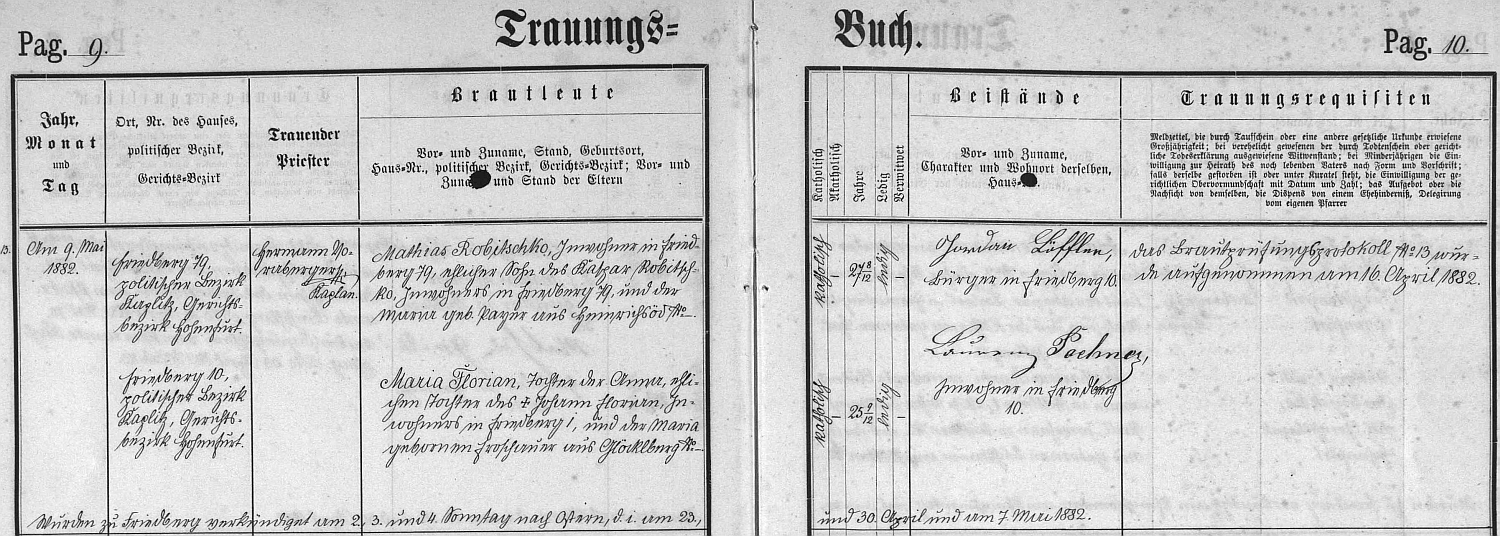 Pag. 9.
Trauungs=
Jahr,
Monat
und
Tag
Ort, Nr. des Hauses,
politischer Bezirk,
Gerichts-Bezirk
Trauender
Priester
Brautleute
Vor- und Zuname, Stand, Geburtsort,
Haus-Nr., politischer Bezirk, Gerichts-Bezirk; Vor- und
Zuname und Stand der Eltern
13. Am 9. Mai
1882.
Friedberg 79,
politischer Bezirk
Kaplitz, Gerichts-
bezirk Hohenfurt.
Hermann Vo-
rabergerer
Kaplan.
Mathias Robitschko, Inwohner in Fried-
berg 79, ehlicher Sohn des Kaspar Robitsch-
ko, Inwohners in Friedberg 79, und der
Maria geb. Payer aus Heinrichsöd No –
Friedberg 10,
politischer Bezirk
Kaplitz, Gerichts-
bezirk Hohenfurt.
Maria Florian, Tochter der Anna, ehli-
chen Tochter des † Johann Florian, In-
wohners in Friedberg 1, und der Maria
gebornen Froschauer aus Glöcklberg No –
Wurden zu Friedberg verkündiget am 2., 3. und 4. Sonntag nach Ostern, d. i. am 23.,
Buch.
Pag. 10.
Katholisch
Akatholisch
Jahre
Ledig
Verwitwet
Beistände
Vor- und Zuname,
Charakter und Wohnort derselben,
Haus-Nr.
Trauungsrequisiten
Meldzettel, die durch Taufschein oder eine andere gesetzliche Urkunde erwiesene
Großjährigkeit; bei verehelicht gewesenen der durch Todtenschein oder gericht-
liche Todeserklärung ausgewiesene Witwenstand; bei Minderjährigen die Ein-
willigung zur Heirath des noch lebenden Vaters nach Form und Vorschrift;
falls derselbe gestorben ist oder unter Kuratel steht, die Einwilligung der ge-
richtlichen Obervormundschaft mit Datum und Zahl; das Aufgebot oder die
Nachsicht von demselben, die Dispens von einem Ehehinderniß, Delegirung
vom eigenen Pfarrer
katholisch – 27 8/12 ledig –
Jordan Löffler,
Bürger in Friedberg 10.
das Brautprüfungsprotokoll No 13 wur-
de aufgenommen am 16. April 1882.
katholisch – 25 9/12 ledig –
Laurenz Pachner,
Inwohner in Friedberg
10.
und 30. April und am 7. Mai 1882.